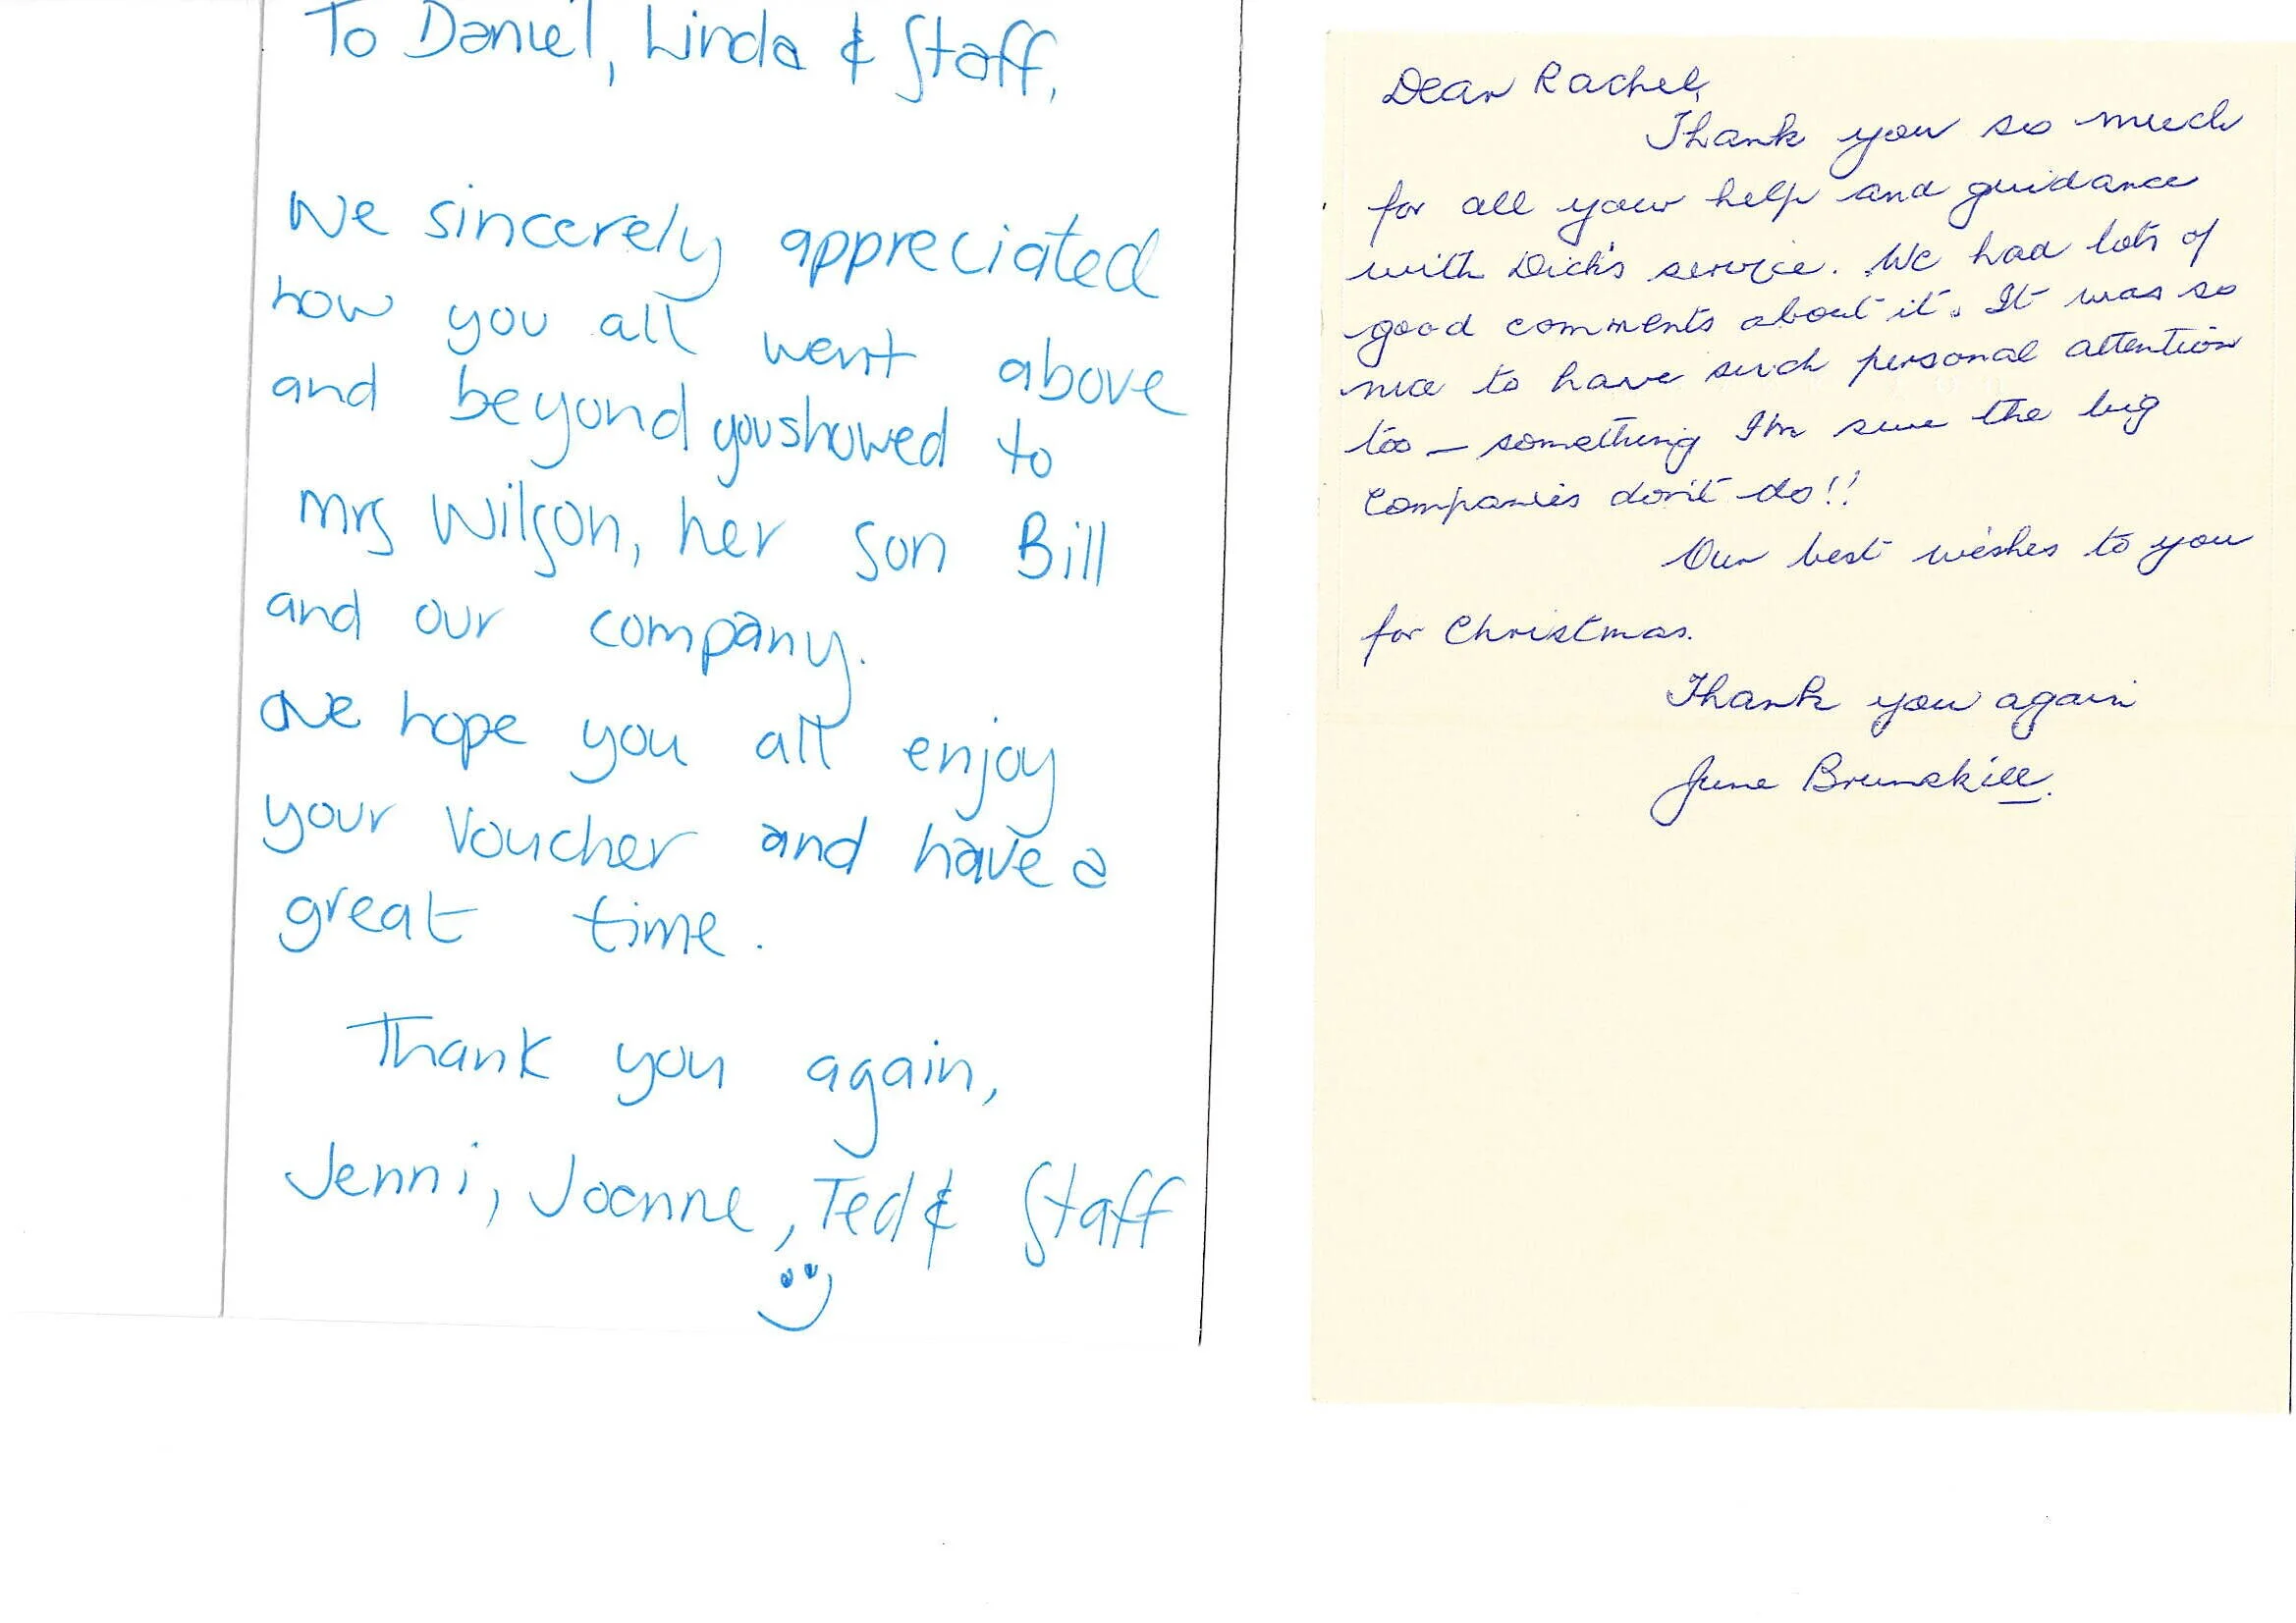 To Daniel, Linda & Staff,
We sincerely appreciated
how you all went above
and beyond you showed to
Mrs Wilson, her son Bill
and our company.
We hope you all enjoy
your voucher and have a
great time.
Thank you again,
Jenni, Joanne, Ted & Staff
Dear Rachel,
Thank you so much
for all your help and guidance
with Dick's service. We had lots of
good comments about it. It was so
nice to have such personal attention
too – something I'm sure the big
Companies don't do!!
Our best wishes to you
for Christmas.
Thank you again
June Brunskill.